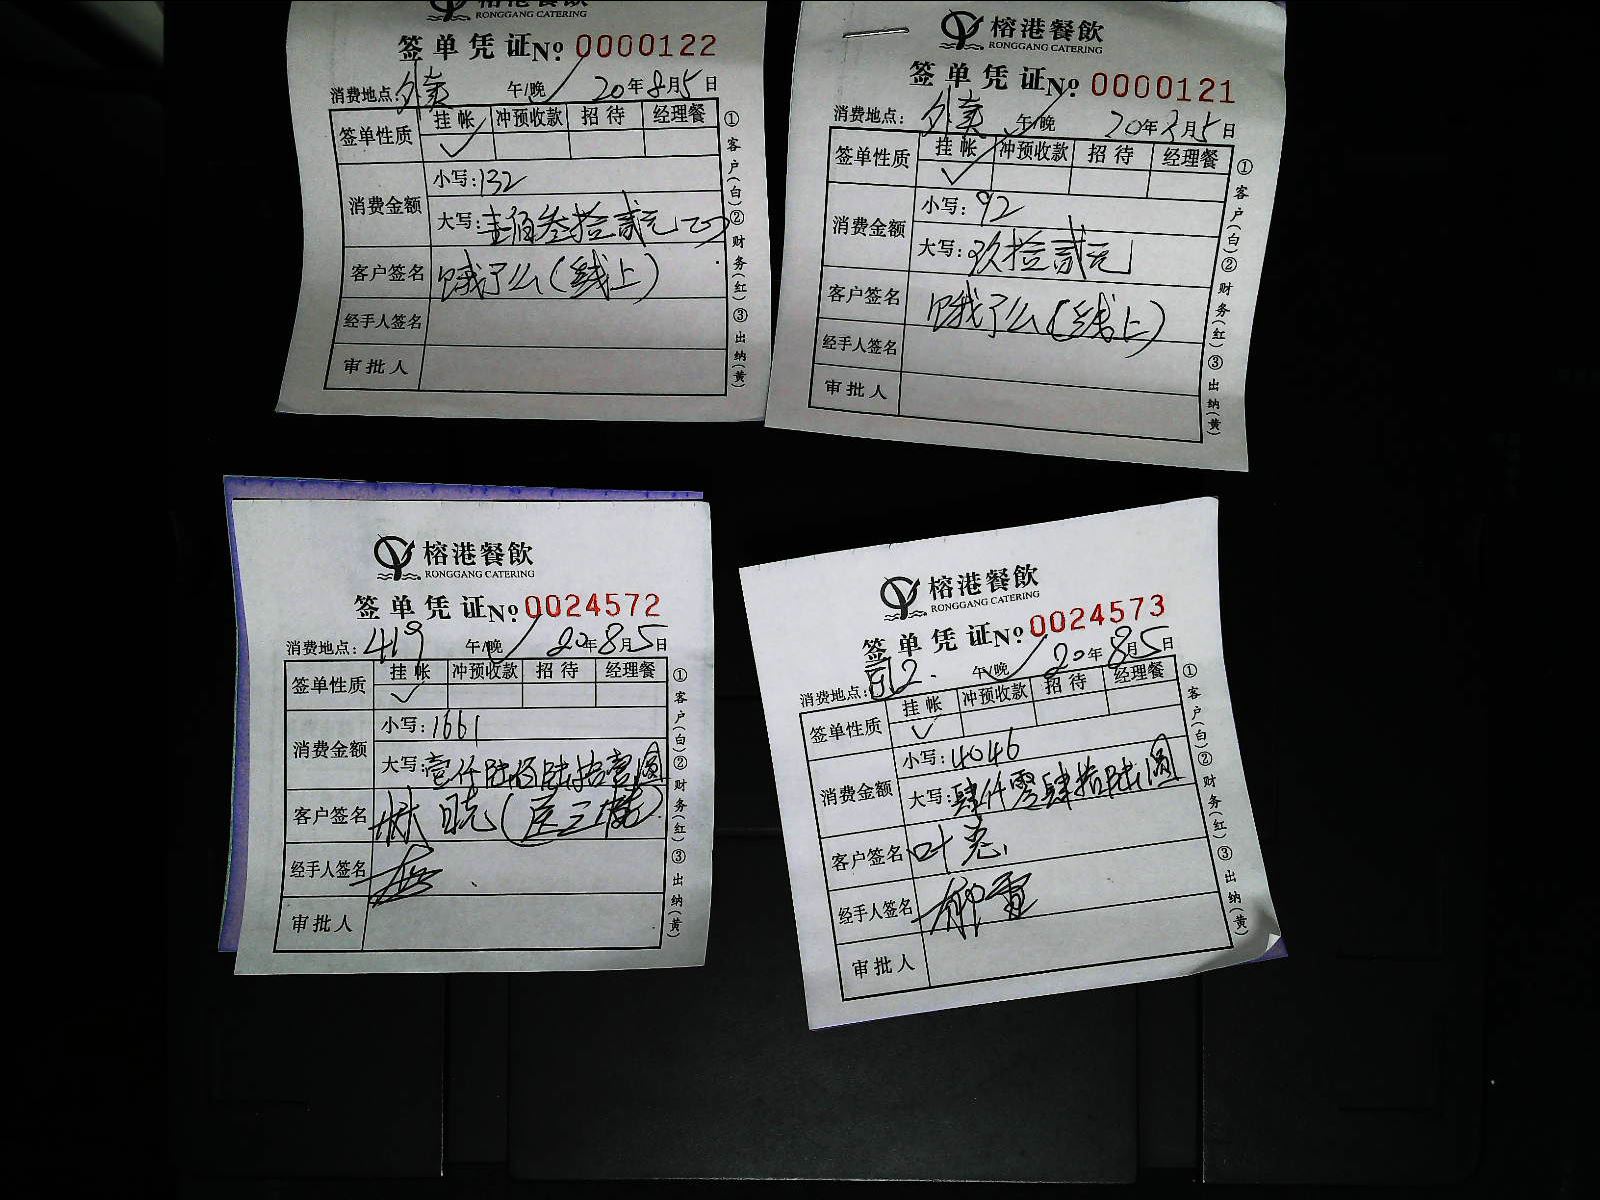 RONGGANG CATERING
签单凭证№ 0000122
消费地点: 外卖 午/晚 20年8月5日
签单性质 挂帐 冲预收款 招待 经理餐
消费金额
小写: 132
大写: 壹佰叁拾贰元
客户签名 饿了么(线上)
经手人签名
审批人
①客户(白)②财务(红)③出纳(黄)
榕港餐飲
RONGGANG CATERING
签单凭证№ 0000121
消费地点: 外卖 午/晚 20年8月5日
签单性质 挂帐 冲预收款 招待 经理餐
消费金额
小写: 92
大写: 玖拾贰元
客户签名 饿了么(线上)
经手人签名
审批人
①客户(白)②财务(红)③出纳(黄)
榕港餐飲
RONGGANG CATERING
签单凭证№ 0024572
消费地点: 419 午/晚 20年8月5日
签单性质 挂帐 冲预收款 招待 经理餐
消费金额
小写: 1661
大写: 壹仟陆佰陆拾壹圆
客户签名 林晓
经手人签名
审批人
①客户(白)②财务(红)③出纳(黄)
榕港餐飲
RONGGANG CATERING
签单凭证№ 0024573
消费地点: 午/晚 20年8月5日
签单性质 挂帐 冲预收款 招待 经理餐
消费金额
小写: 4046
大写: 肆仟零肆拾陆圆
客户签名 叶
经手人签名
审批人
①客户(白)②财务(红)③出纳(黄)